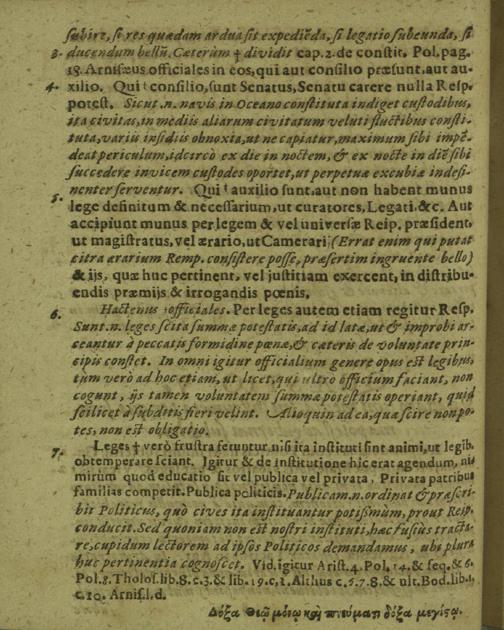 subire, si res quædam ardua sit expediẽda, si legatio subeunda, si
3. ducendum bellũ. Cæterùm † dividit cap. 2. de constit. Pol. pag.
18. Arnisæus officiales in eos, qui aut consilio præsunt, aut au-
4. xilio. Qui † consilio, sunt Senatus, Senatu carere nulla Resp.
potest. Sicut .n. navis in Oceano constituta indiget custodibus,
ita civitas, in mediis aliarum civitatum veluti fluctibus consti-
tuta, variis insidiis obnoxia, ut ne capiatur, maximum sibi impẽ-
deat periculum, idcircò ex die in noctem, & ex nocte in diẽ sibi
succedere invicem custodes oportet, ut perpetuæ excubiæ indesi-
5. nenter serventur. Qui † auxilio sunt, aut non habent munus
lege definitum & necessarium, ut curatores, Legati, &c. Aut
accipiunt munus per legem & vel universæ Reip. præsident,
ut magistratus, vel ærario, ut Camerarii (Errat enim qui putat
citra ærarium Remp. consistere posse, præsertim ingruente bello)
& iis, quæ huc pertinent, vel justitiam exercent, in distribu-
endis præmijs & irrogandis pœnis.
6. Hactenus officiales. Per leges autem etiam regitur Resp.
Sunt .n. leges scita summæ potestatis, ad id latæ, ut & improbi ar-
ceantur à peccatis formidine pœnæ, & cæteris de voluntate prin-
cipis constet. In omni igitur officialium genere opus est legibus,
tùm verò ad hoc etiam, ut licet, qui ultro officium faciant, non
cogunt, ijs tamen voluntatem summæ potestatis operiant, quid
scilicet à subditis fieri velint. Alioquin ad ea, quæ scire non po-
tes, non est obligatio.
7. Leges † verò frustra feruntur, nisi ita instituti sint animi, ut legib.
obtemperare sciant. Igitur & de institutione hic erat agendum, ni-
mirùm quod educatio sit vel publica vel privata, Privata patribus
familias competit. Publica politicis. Publicam .n. ordinat & præscri-
bit Politicus, quò cives ita instituantur potissimùm, prout Reip.
conducit. Sed quoniam non est nostri instituti, hæc fusiùs tracta-
re, cupidum lectorem ad ipsos Politicos demandamus, ubi plura
huc pertinentia cognoscet. Vid. igitur Arist. 4. Pol. 14. & seq. & 6.
Pol. 8. Tholos. lib. 8. c. 3. & lib. 19. c. 1. Althus c. 5. 7. 8. & ult. Bod. lib. 1.
c. 10. Arnis. l. d.
Δόξα Θεῷ μόνῳ καὶ πνεύματι δόξα μεγίσῳ.